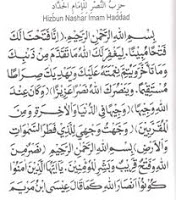 حِزْبُ النَّصْرِ لِلْإِمَامِ الْحَدَّادِ
Hizbun Nashar Imam Haddad
بِسْمِ اللهِ الرَّحْمٰنِ الرَّحِيْمِ. إِنَّا فَتَحْنَا لَكَ
فَتْحًا مُبِيْنًا. لِيَغْفِرَ لَكَ اللهُ مَا تَقَدَّمَ مِنْ ذَنْبِكَ
وَمَا تَأَخَّرَ وَيُتِمَّ نِعْمَتَهُ عَلَيْكَ وَيَهْدِيَكَ صِرَاطًا
مُسْتَقِيْمًا. وَيَنْصُرَكَ اللهُ نَصْرًا عَزِيْزًا. وَكَانَ عِنْدَ
اللهِ وَجِيْهًا. وَجِيْهًا فِي الدُّنْيَا وَالْآخِرَةِ وَمِنَ
الْمُقَرَّبِيْنَ. وَجَّهْتُ وَجْهِيَ لِلَّذِيْ فَطَرَ السَّمٰوَاتِ
وَالْأَرْضَ. بِسْمِ اللهِ الرَّحْمٰنِ الرَّحِيْمِ. نَصْرٌ مِنَ
اللهِ وَفَتْحٌ قَرِيْبٌ وَبَشِّرِ الْمُؤْمِنِيْنَ. يَاأَيُّهَا الَّذِيْنَ آمَنُوْا
كُوْنُوْا أَنْصَارَ اللهِ كَمَا قَالَ عِيْسَى ابْنُ مَرْيَمَ